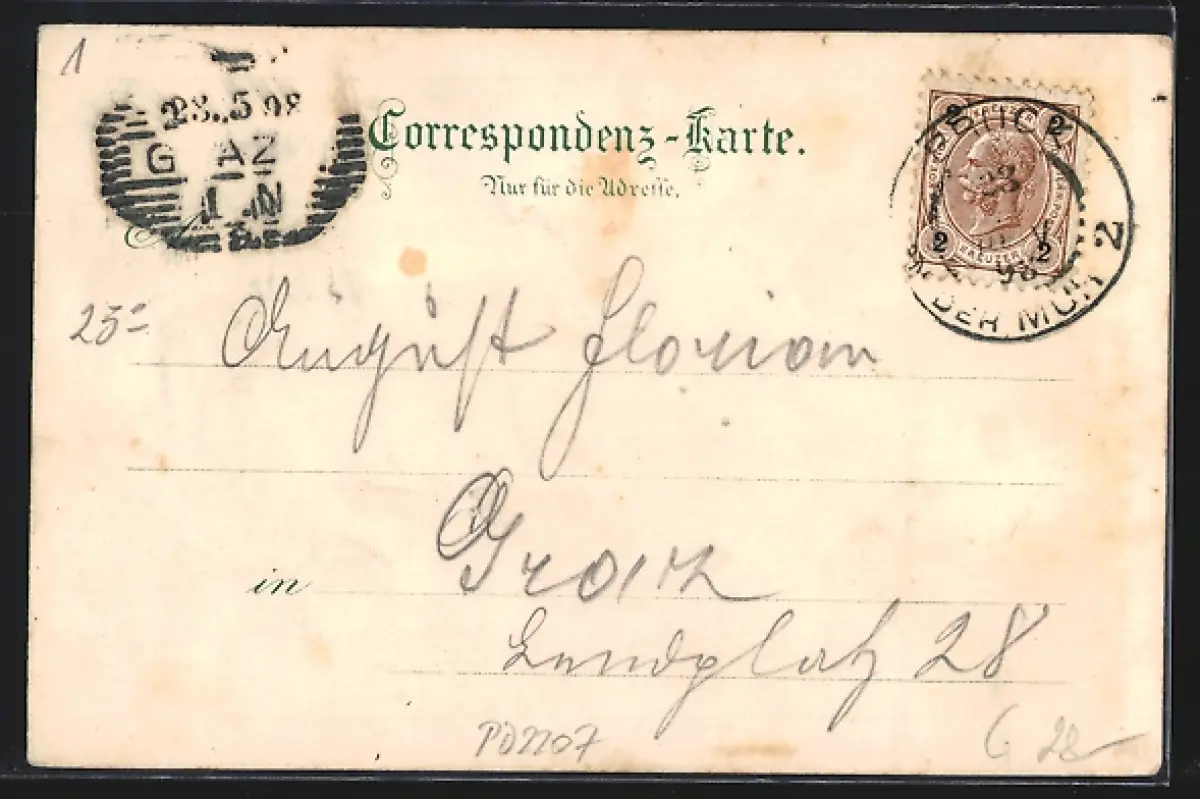 1
23. 5 98
G AZ
1 N
Correspondenz-Karte.
Nur für die Adresse.
BRUCK
23
98
DER MUR 2
2 2
2 KREUZER 2
25-
August Florian
in Graz
Lendplatz 28
PD2207
28